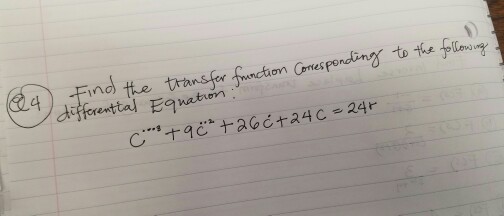 Q4 Find the transfer function Corresponding to the following
differential Equation:
C⃛³ + 9C̈² + 26Ċ + 24C = 24r